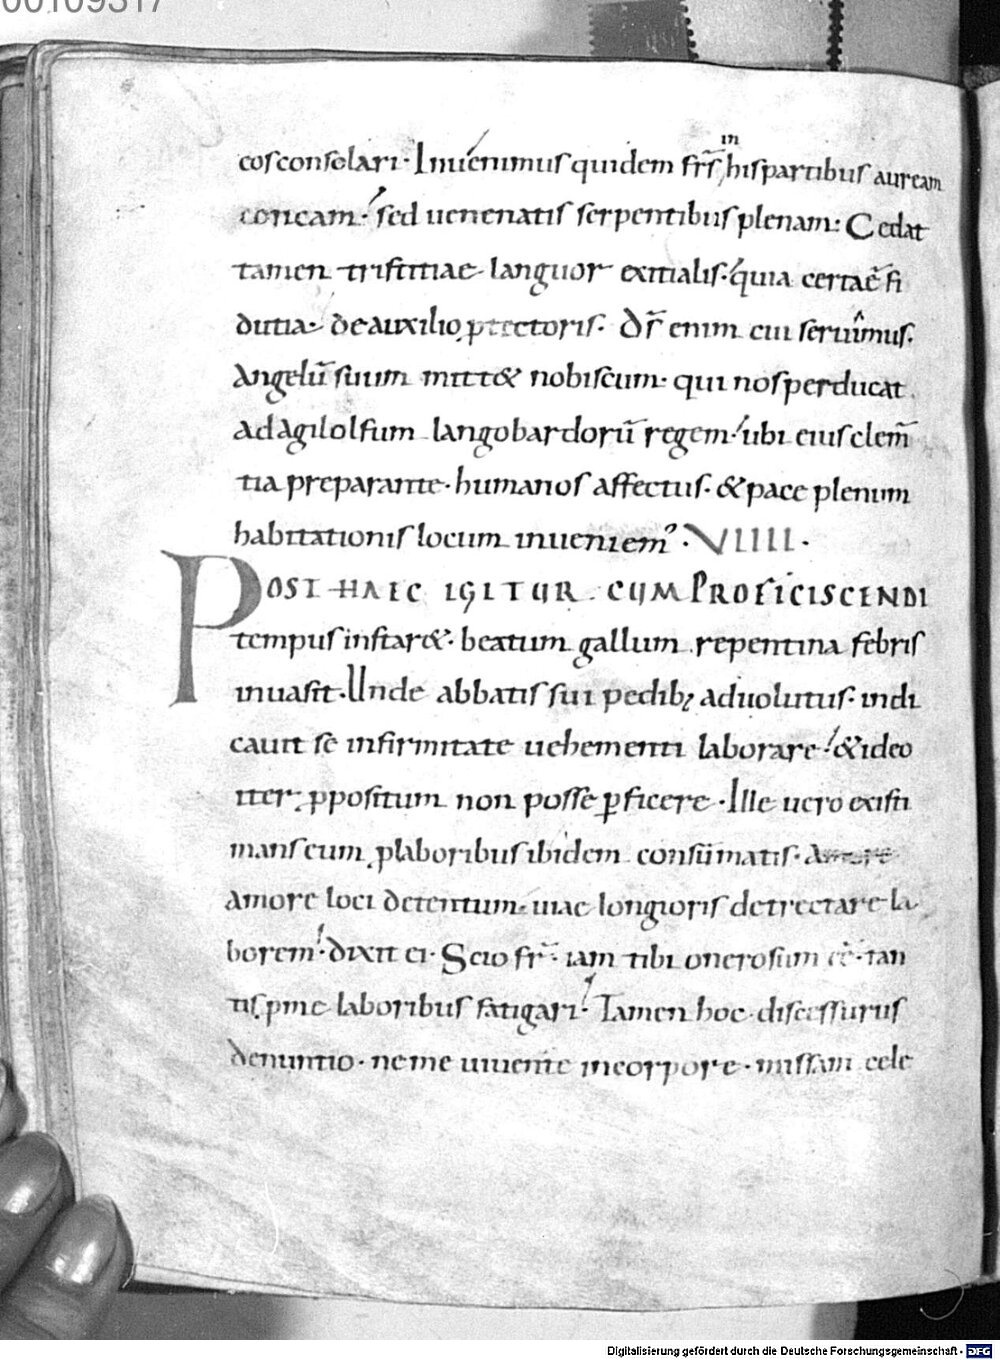 00109317
cos consolari· Inuenimus quidem fr̅s, in his partibus auream
concam·́ sed uenenatis serpentibus plenam: Cedat
tamen tristitiae languor exitialis·́ quia certa ē fi
dutia· de auxilio ꝓtectoris· Ds̅ enim cui seruimus·
Angelū suum mittet nobiscum· qui nos perducat
ad agilolfum langobardorū regem·́ ubi eius clem̅
tia preparante· humanos affectus· & pace plenum
habitationis locum inueniem᾽· VIIII·
POST HAEC IGITUR CUM PROFICISCENDI
tempus instar&· beatum gallum repentina febris
inuasit· Unde abbatis sui pedib; aduolutus· indi
cauit se infirmitate uehementi laborare·́ & ideo
iter ꝓpositum non posse ꝑficere· Ille uero existi
mans eum ꝓ laboribus ibidem consūmatis·
amore loci detentum· uiae longioris detrectare la
borem·́ dixit ei· Scio fr̅· iam tibi onerosum eē· tan
tis ꝓ me laboribus fatigari·́ Tamen hoc discessurus
denuntio· ne me uiuente in corpore· missam cele
Digitalisierung gefördert durch die Deutsche Forschungsgemeinschaft - DFG